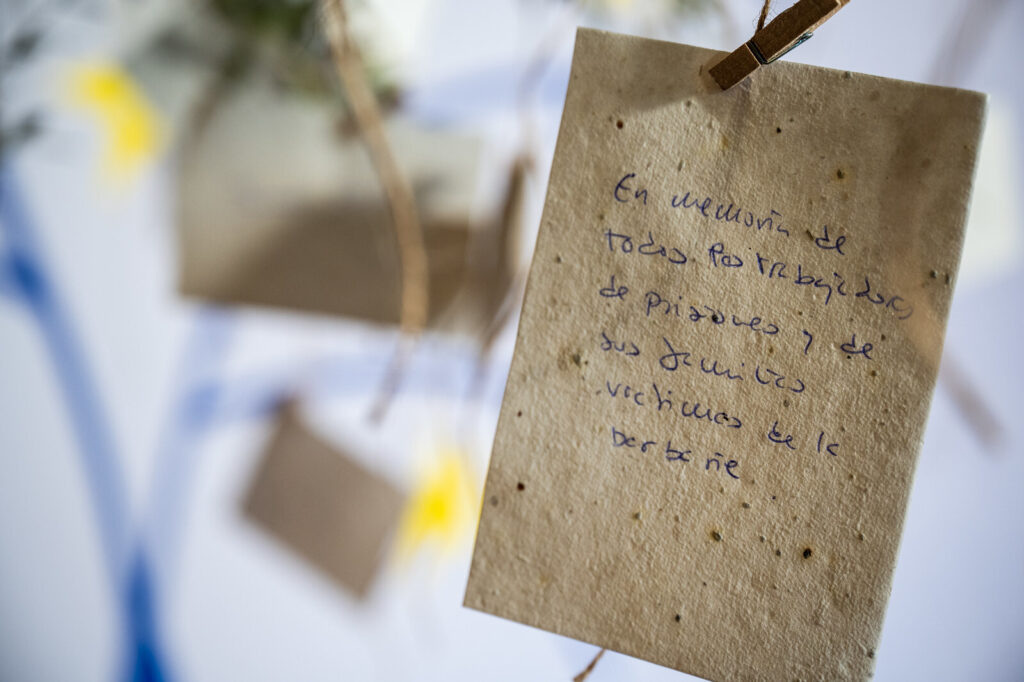 En memoria de
todos los trabajadores
de prisiones y de
sus familias
victimas de la
barbarie